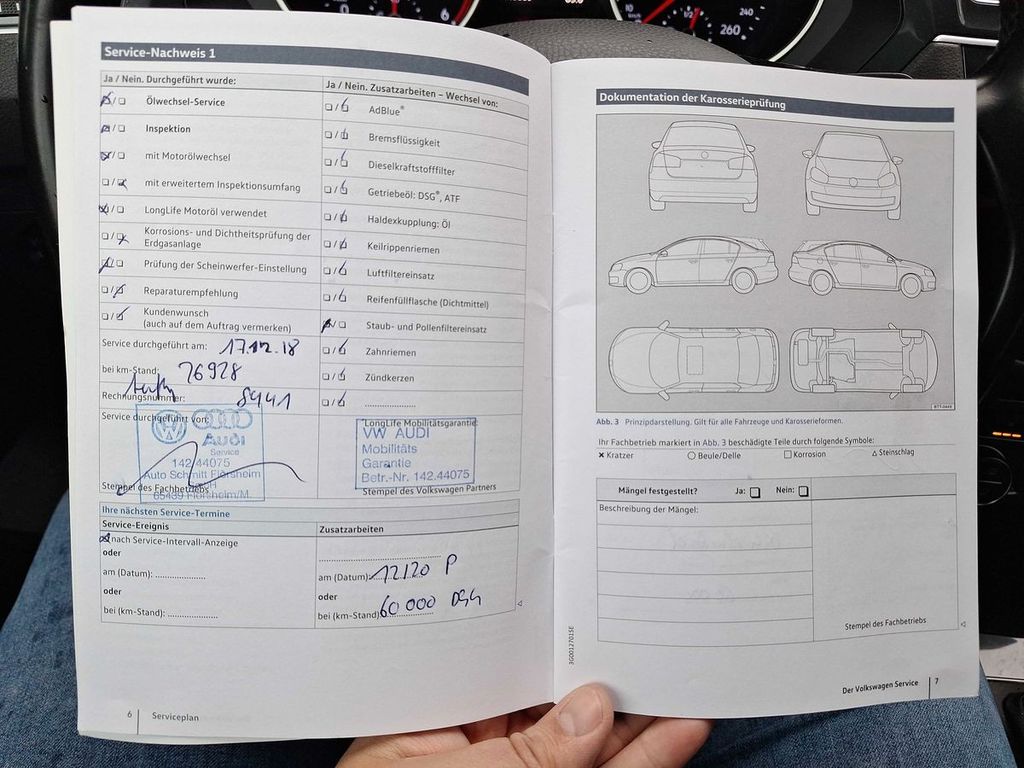 0
6
240
1/2
260
Service-Nachweis 1
Ja / Nein. Durchgeführt wurde:
Ölwechsel-Service
Inspektion
mit Motorölwechsel
mit erweitertem Inspektionsumfang
LongLife Motoröl verwendet
Korrosions- und Dichtheitsprüfung der
Erdgasanlage
Prüfung der Scheinwerfer-Einstellung
Reparaturempfehlung
Kundenwunsch
(auch auf dem Auftrag vermerken)
Service durchgeführt am: 17.12.18
bei km-Stand: 26928
Rechnungsnummer: 8441
Service durchgeführt von:
Audi
Service
142 44075
Auto Schmitt Flörsheim
65439 Flörsheim/M.
Stempel des Fachbetriebs
Ja / Nein. Zusatzarbeiten – Wechsel von:
AdBlue®
Bremsflüssigkeit
Dieselkraftstofffilter
Getriebeöl: DSG®, ATF
Haldexkupplung: Öl
Keilrippenriemen
Luftfiltereinsatz
Reifenfüllflasche (Dichtmittel)
Staub- und Pollenfiltereinsatz
Zahnriemen
Zündkerzen
LongLife Mobilitätsgarantie:
VW AUDI
Mobilitäts
Garantie
Betr.-Nr. 142.44075
Stempel des Volkswagen Partners
Ihre nächsten Service-Termine
Service-Ereignis
nach Service-Intervall-Anzeige
oder
am (Datum): ..................
oder
bei (km-Stand): ..................
Zusatzarbeiten
am (Datum): 12120 P
oder
bei (km-Stand) 60 000 DSG
6 Serviceplan
Dokumentation der Karosserieprüfung
B7T-0449
Abb. 3 Prinzipdarstellung. Gilt für alle Fahrzeuge und Karosserieformen.
Ihr Fachbetrieb markiert in Abb. 3 beschädigte Teile durch folgende Symbole:
× Kratzer ○ Beule/Delle □ Korrosion △ Steinschlag
Mängel festgestellt? Ja: Nein:
Beschreibung der Mängel:
Stempel des Fachbetriebs
3G0012701SE
Der Volkswagen Service 7